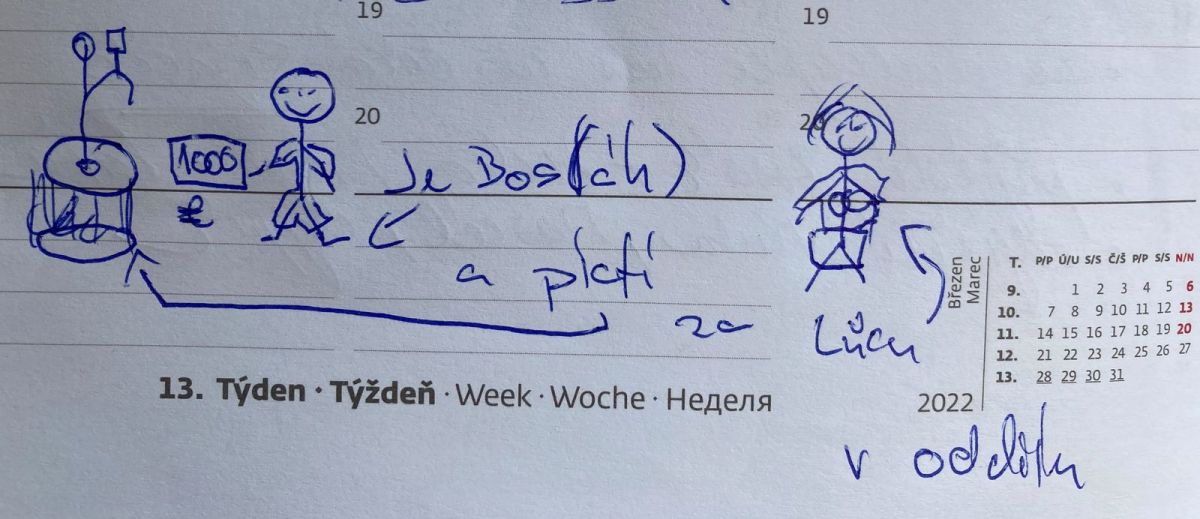 19
19
20
20
1000
€
Je Bos(áh)
a platí
za
Lůcu
13. Týden · Týždeň · Week · Woche · Неделя
2022
Březen
Marec
T. P/P Ú/U S/S Č/Š P/P S/S N/N
9. 1 2 3 4 5 6
10. 7 8 9 10 11 12 13
11. 14 15 16 17 18 19 20
12. 21 22 23 24 25 26 27
13. 28 29 30 31
v oddílu